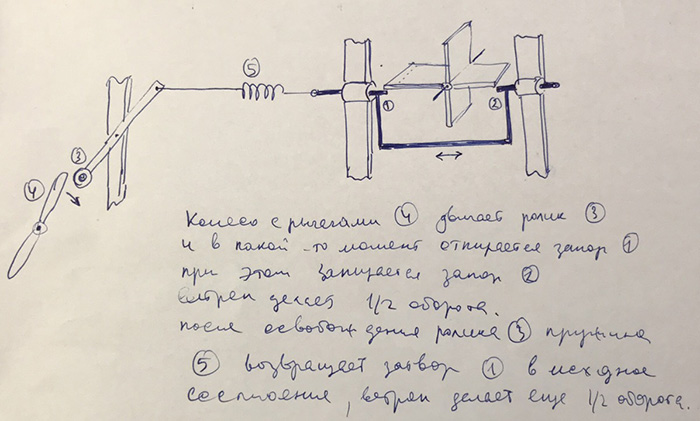 ⑤
① ②
③
④
Колесо с рычагами ④ двигает ролик ③
и в какой-то момент отпирается запор ①
при этом запирается запор ②
ветряк делает 1/2 оборота.
после освобождения ролика ③ пружина
⑤ возвращает затвор ① в исходное
состояние, ветряк делает еще 1/2 оборота.